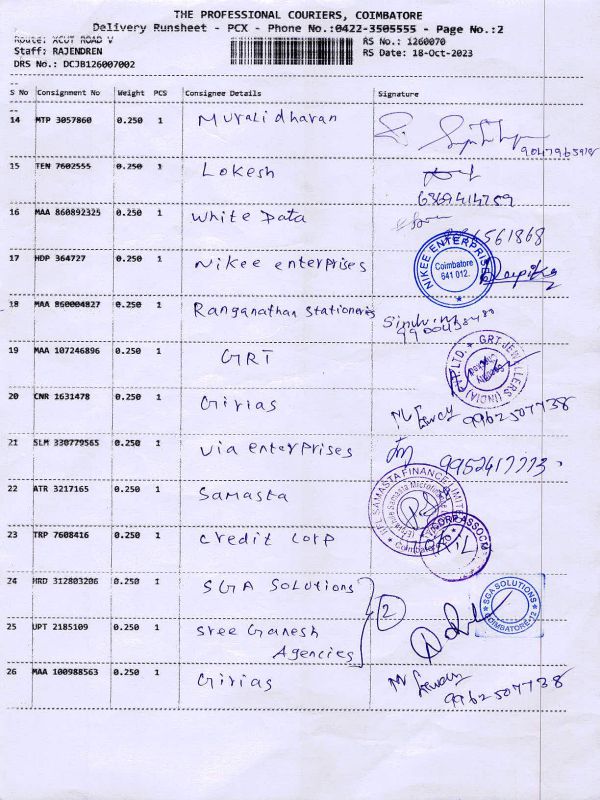 THE PROFESSIONAL COURIERS, COIMBATORE
Delivery Runsheet - PCX - Phone No.:0422-3505555 - Page No.:2
Route: XCUT ROAD V
RS No.: 1260070
Staff: RAJENDREN
RS Date: 18-Oct-2023
DRS No.: DCJB126007002
S No Consignment No Weight PCS Consignee Details Signature
14 MTP 3057860 0.250 1 Muralidharan
15 TEN 7602555 0.250 1 Lokesh
16 MAA 860892325 0.250 1 White Data
17 HDP 364727 0.250 1 Nikee enterprises
NIKEE ENTERPRISES
Coimbatore
641 012.
18 MAA 860004827 0.250 1 Ranganathan Stationeries
19 MAA 107246896 0.250 1 GRT
GRT JEWELLERS (INDIA) PVT. LTD.
20 CNR 1631478 0.250 1 Girias
9962507738
21 SLM 330779565 0.250 1 Via enterprises
22 ATR 3217165 0.250 1 Samasta
SAMASTA FINANCE LIMITED
Coimbatore
23 TRP 7608416 0.250 1 Credit Corp
24 HRD 312803206 0.250 1 SGA Solutions
2
SGA SOLUTIONS
COIMBATORE-12
25 UPT 2185109 0.250 1 Sree Ganesh
Agencies
26 MAA 100988563 0.250 1 Girias
9962507738